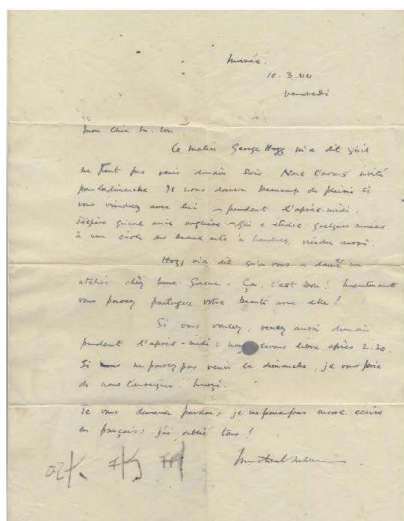 Musée.
10.3.44
vendredi
Mon Cher M.
Ce matin George Hogg m'a dit qu'il
ne peut pas venir demain soir. Nous l'avons invité
pour la dimanche. Il nous donnera beaucoup de plaisir si
vous viendrez avec lui - pendant l'après-midi.
J'espère qu'une amie anglaise - qui a étudié quelques années
à une école des beaux arts à Londres, viendra aussi.
Hogg m'a dit qu'on vous a donné un
atelier chez Mme. Ça, c'est bon! Maintenant
vous pouvez partager votre beauté avec elle!
Si vous voulez, venez aussi demain
pendant l'après-midi: nous serons libre après 2.30
Si vous ne pouvez pas venir la dimanche, je vous prie
de nous l'enseigner.
Je vous demande pardon: je ne peux pas encore écrire
en français: j'ai oublié tous!